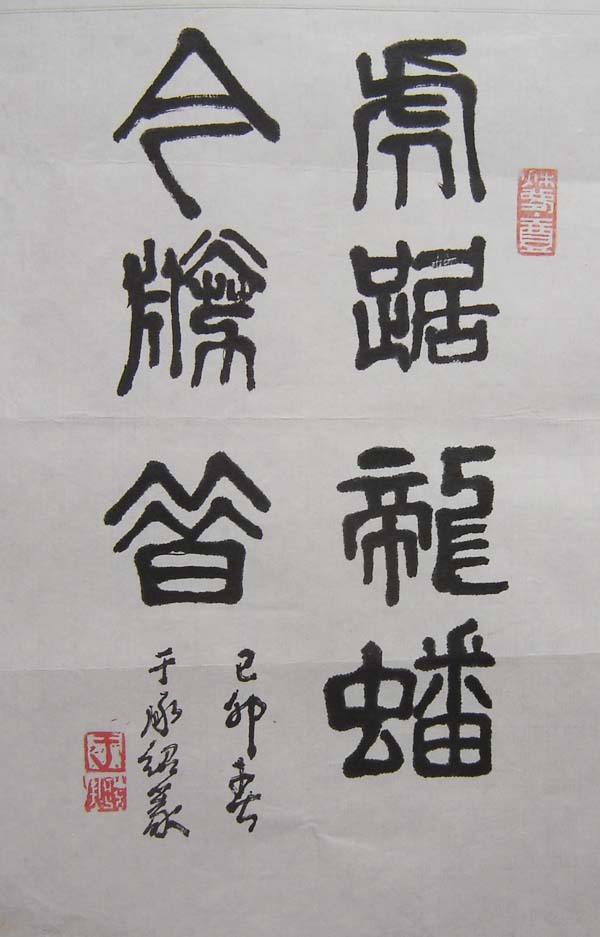 虎踞龍蟠
今勝昔
己卯春
于承紹篆